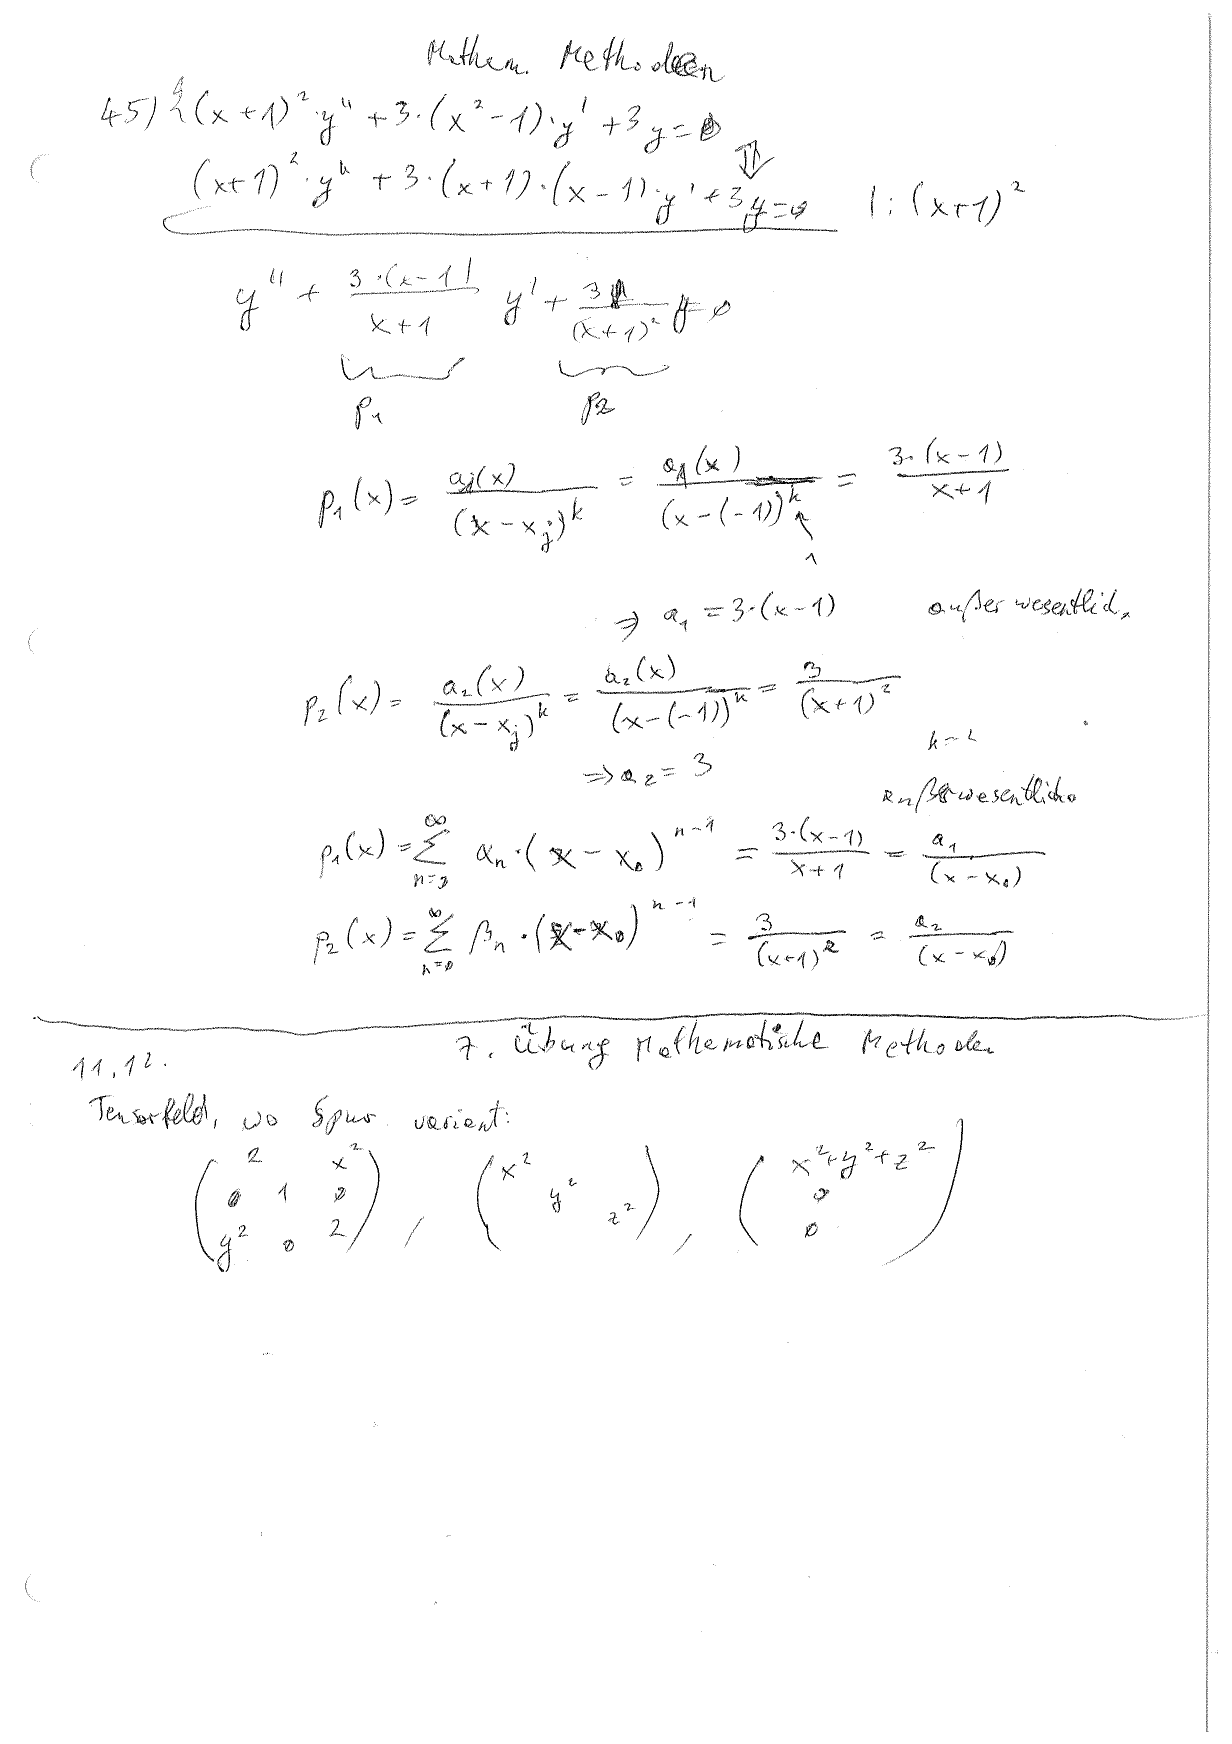 Mathem. Methoden
45) (x+1)²·y'' + 3·(x²-1)·y' + 3y = 0
⇓
(x+1)²·y'' + 3·(x+1)·(x-1)·y' + 3y = 0 | : (x+1)²
y'' + 3·(x-1)/(x+1) y' + 3/(x+1)² y = 0
p₁ p₂
p₁(x) = a_j(x)/(x-x_j)^k = a₁(x)/(x-(-1))^k = 3·(x-1)/(x+1)
↑
1
⇒ a₁ = 3·(x-1) außerwesentlich
p₂(x) = a₂(x)/(x-x_j)^k = a₂(x)/(x-(-1))^k = 3/(x+1)²
k=2
⇒ a₂ = 3
außerwesentlich
p₁(x) = ∑_{n=0}^{∞} α_n·(x-x₀)^{n-1} = 3·(x-1)/(x+1) = a₁/(x-x₀)
p₂(x) = ∑_{n=0}^{∞} β_n·(x-x₀)^{n-1} = 3/(x+1)² = a₂/(x-x₀)
7. Übung Mathematische Methoden
11.12.
Tensorfeld, wo Spur variant:
( 2 x² ) , ( x² ) , ( x²+y²+z² )
( 0 1 0 ) ( y² ) ( 0 )
( y² 0 2 ) ( z² ) ( 0 )